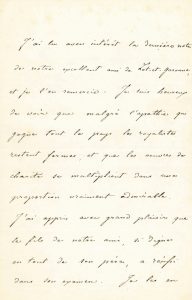 J'ai lu avec intérêt la dernière note
de notre excellent ami de Lot-et-Garonne
et je l'en remercie. Je suis heureux
de voir que malgré l'apathie qui
gagne tout le pays les royalistes
restent fermes, et que les œuvres de
charité se multiplient dans une
proportion vraiment admirable.
J'ai appris avec grand plaisir que
le fils de notre ami, si digne
en tout de son père, a réussi
dans son examen. Je lui en